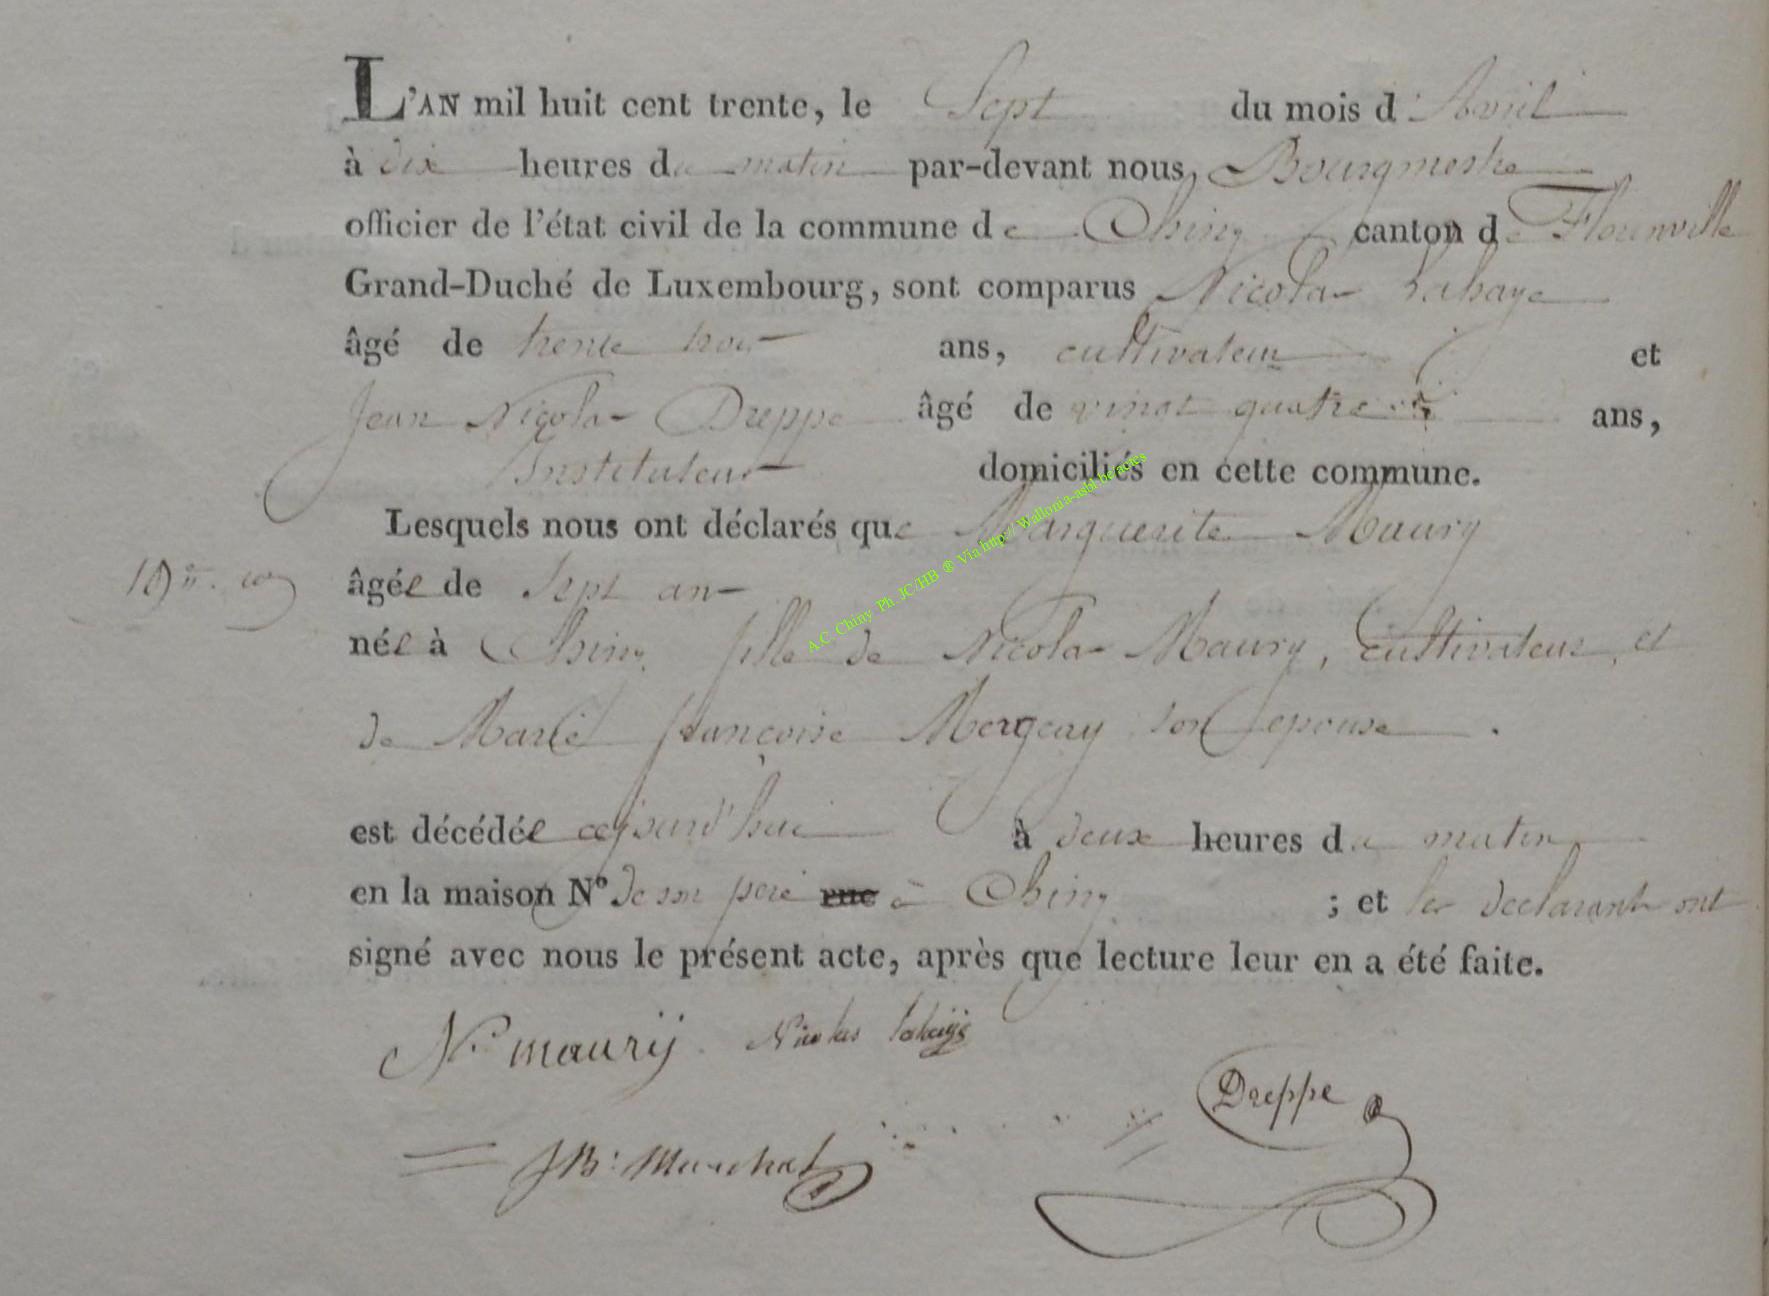 L'AN mil huit cent trente, le Sept du mois d'Avril
à dix heures du matin par-devant nous, Bourgmestre
officier de l'état civil de la commune de Chiny canton de Florenville
Grand-Duché de Luxembourg, sont comparus Nicolas Lahaye
âgé de trente trois ans, cultivateur et
Jean Nicolas Dreppe âgé de vingt quatre ans,
Instituteur domiciliés en cette commune.
Lesquels nous ont déclarés que Marguerite Maury
âgée de Sept ans
née à Chiny fille de Nicolas Maury, cultivateur, et
de Marie françoise Mergeay son epouse.
est décédée cejourd'hui à deux heures du matin
en la maison N° de son pere rue à Chiny ; et les declarants ont
signé avec nous le présent acte, après que lecture leur en a été faite.
N. maurij. Nicolas lahaije
Dreppe
JB: Marchal
A.C. Chiny Ph. JC/HB ® Via http:// Wallonia-asbl.be/actes